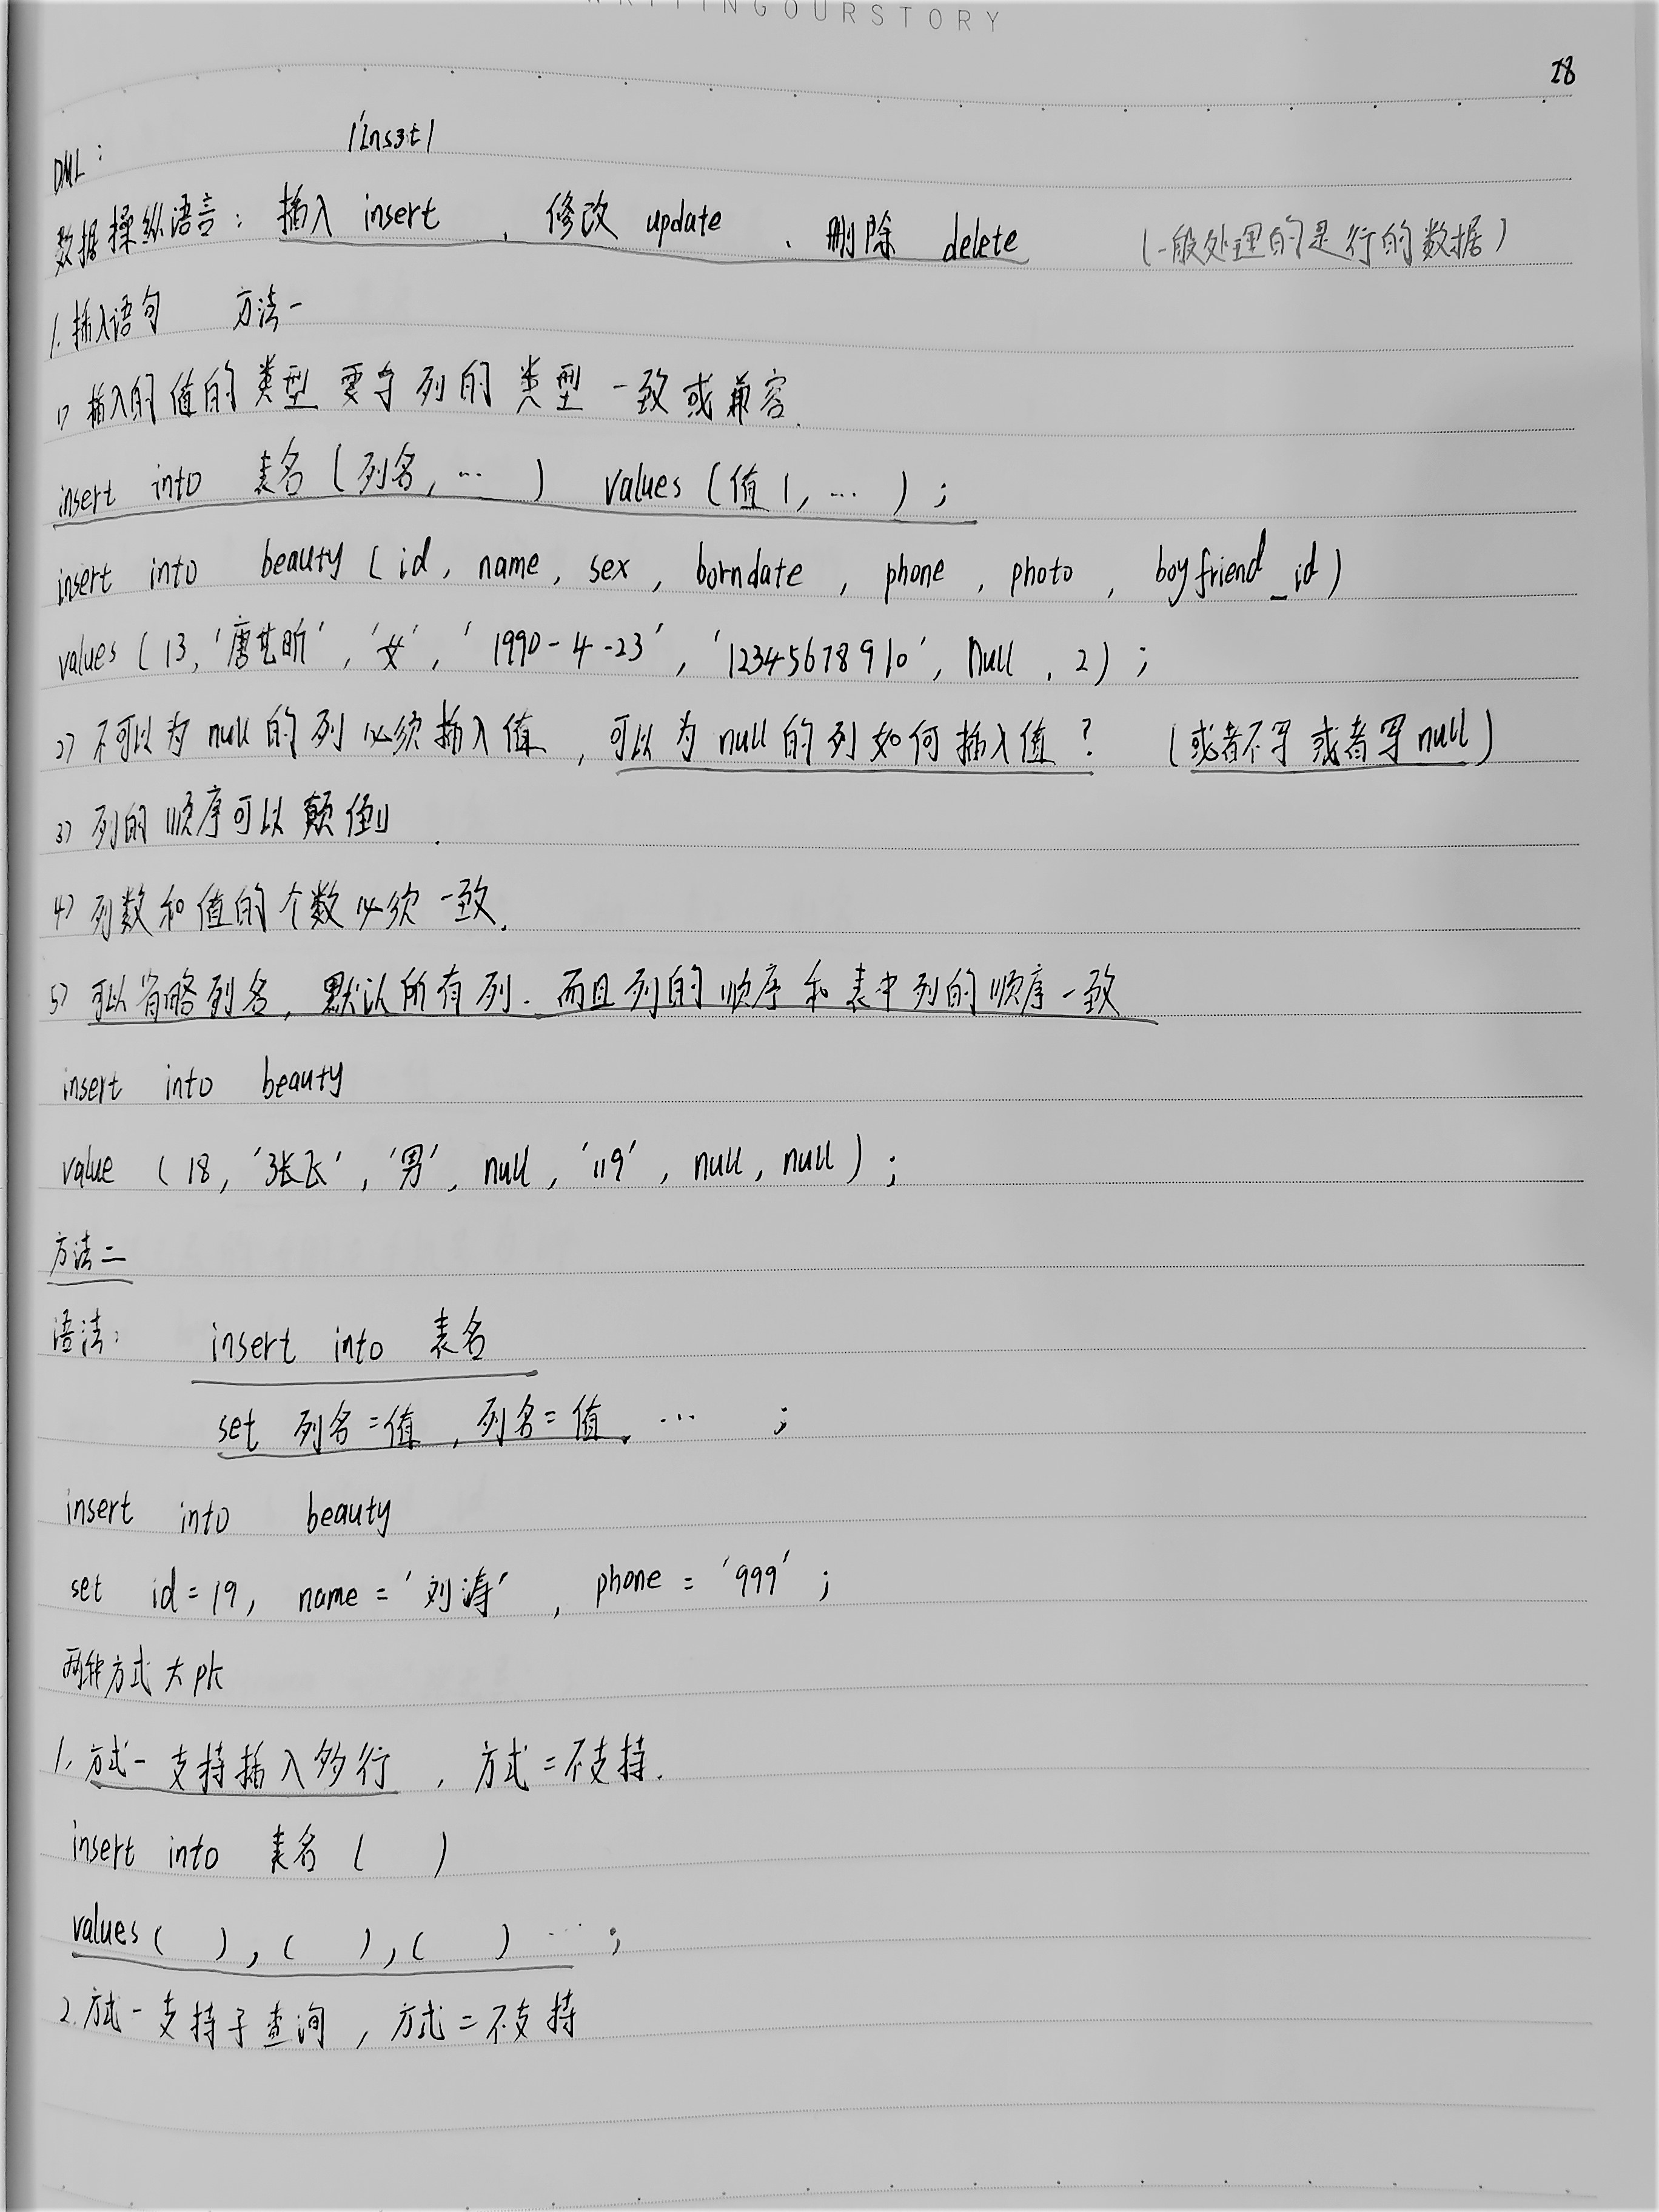 WRITINGOURSTORY
28
DML: /ˈɪnsɜːt/
数据操纵语言: 插入 insert , 修改 update 、删除 delete (一般处理的是行的数据)
1. 插入语句 方法一
1) 插入的值的类型要与列的类型一致或兼容.
insert into 表名(列名, … ) values (值1, … ) ;
insert into beauty (id, name, sex, borndate, phone, photo, boyfriend_id)
values (13, '唐艺昕', '女', '1990-4-23', '12345678910', Null, 2) ;
2) 不可以为null的列必须插入值, 可以为null的列如何插入值? (或者不写或者写null)
3) 列的顺序可以颠倒.
4) 列数和值的个数必须一致.
5) 可以省略列名, 默认所有列. 而且列的顺序和表中列的顺序一致
insert into beauty
value (18, '张飞', '男', null, '119', null, null) ;
方法二
语法: insert into 表名
set 列名=值, 列名=值, … ;
insert into beauty
set id=19, name='刘涛', phone='999' ;
两种方式大pk
1. 方式一支持插入多行, 方式二不支持.
insert into 表名 ( )
values ( ), ( ), ( ) … ;
2. 方式一支持子查询, 方式二不支持